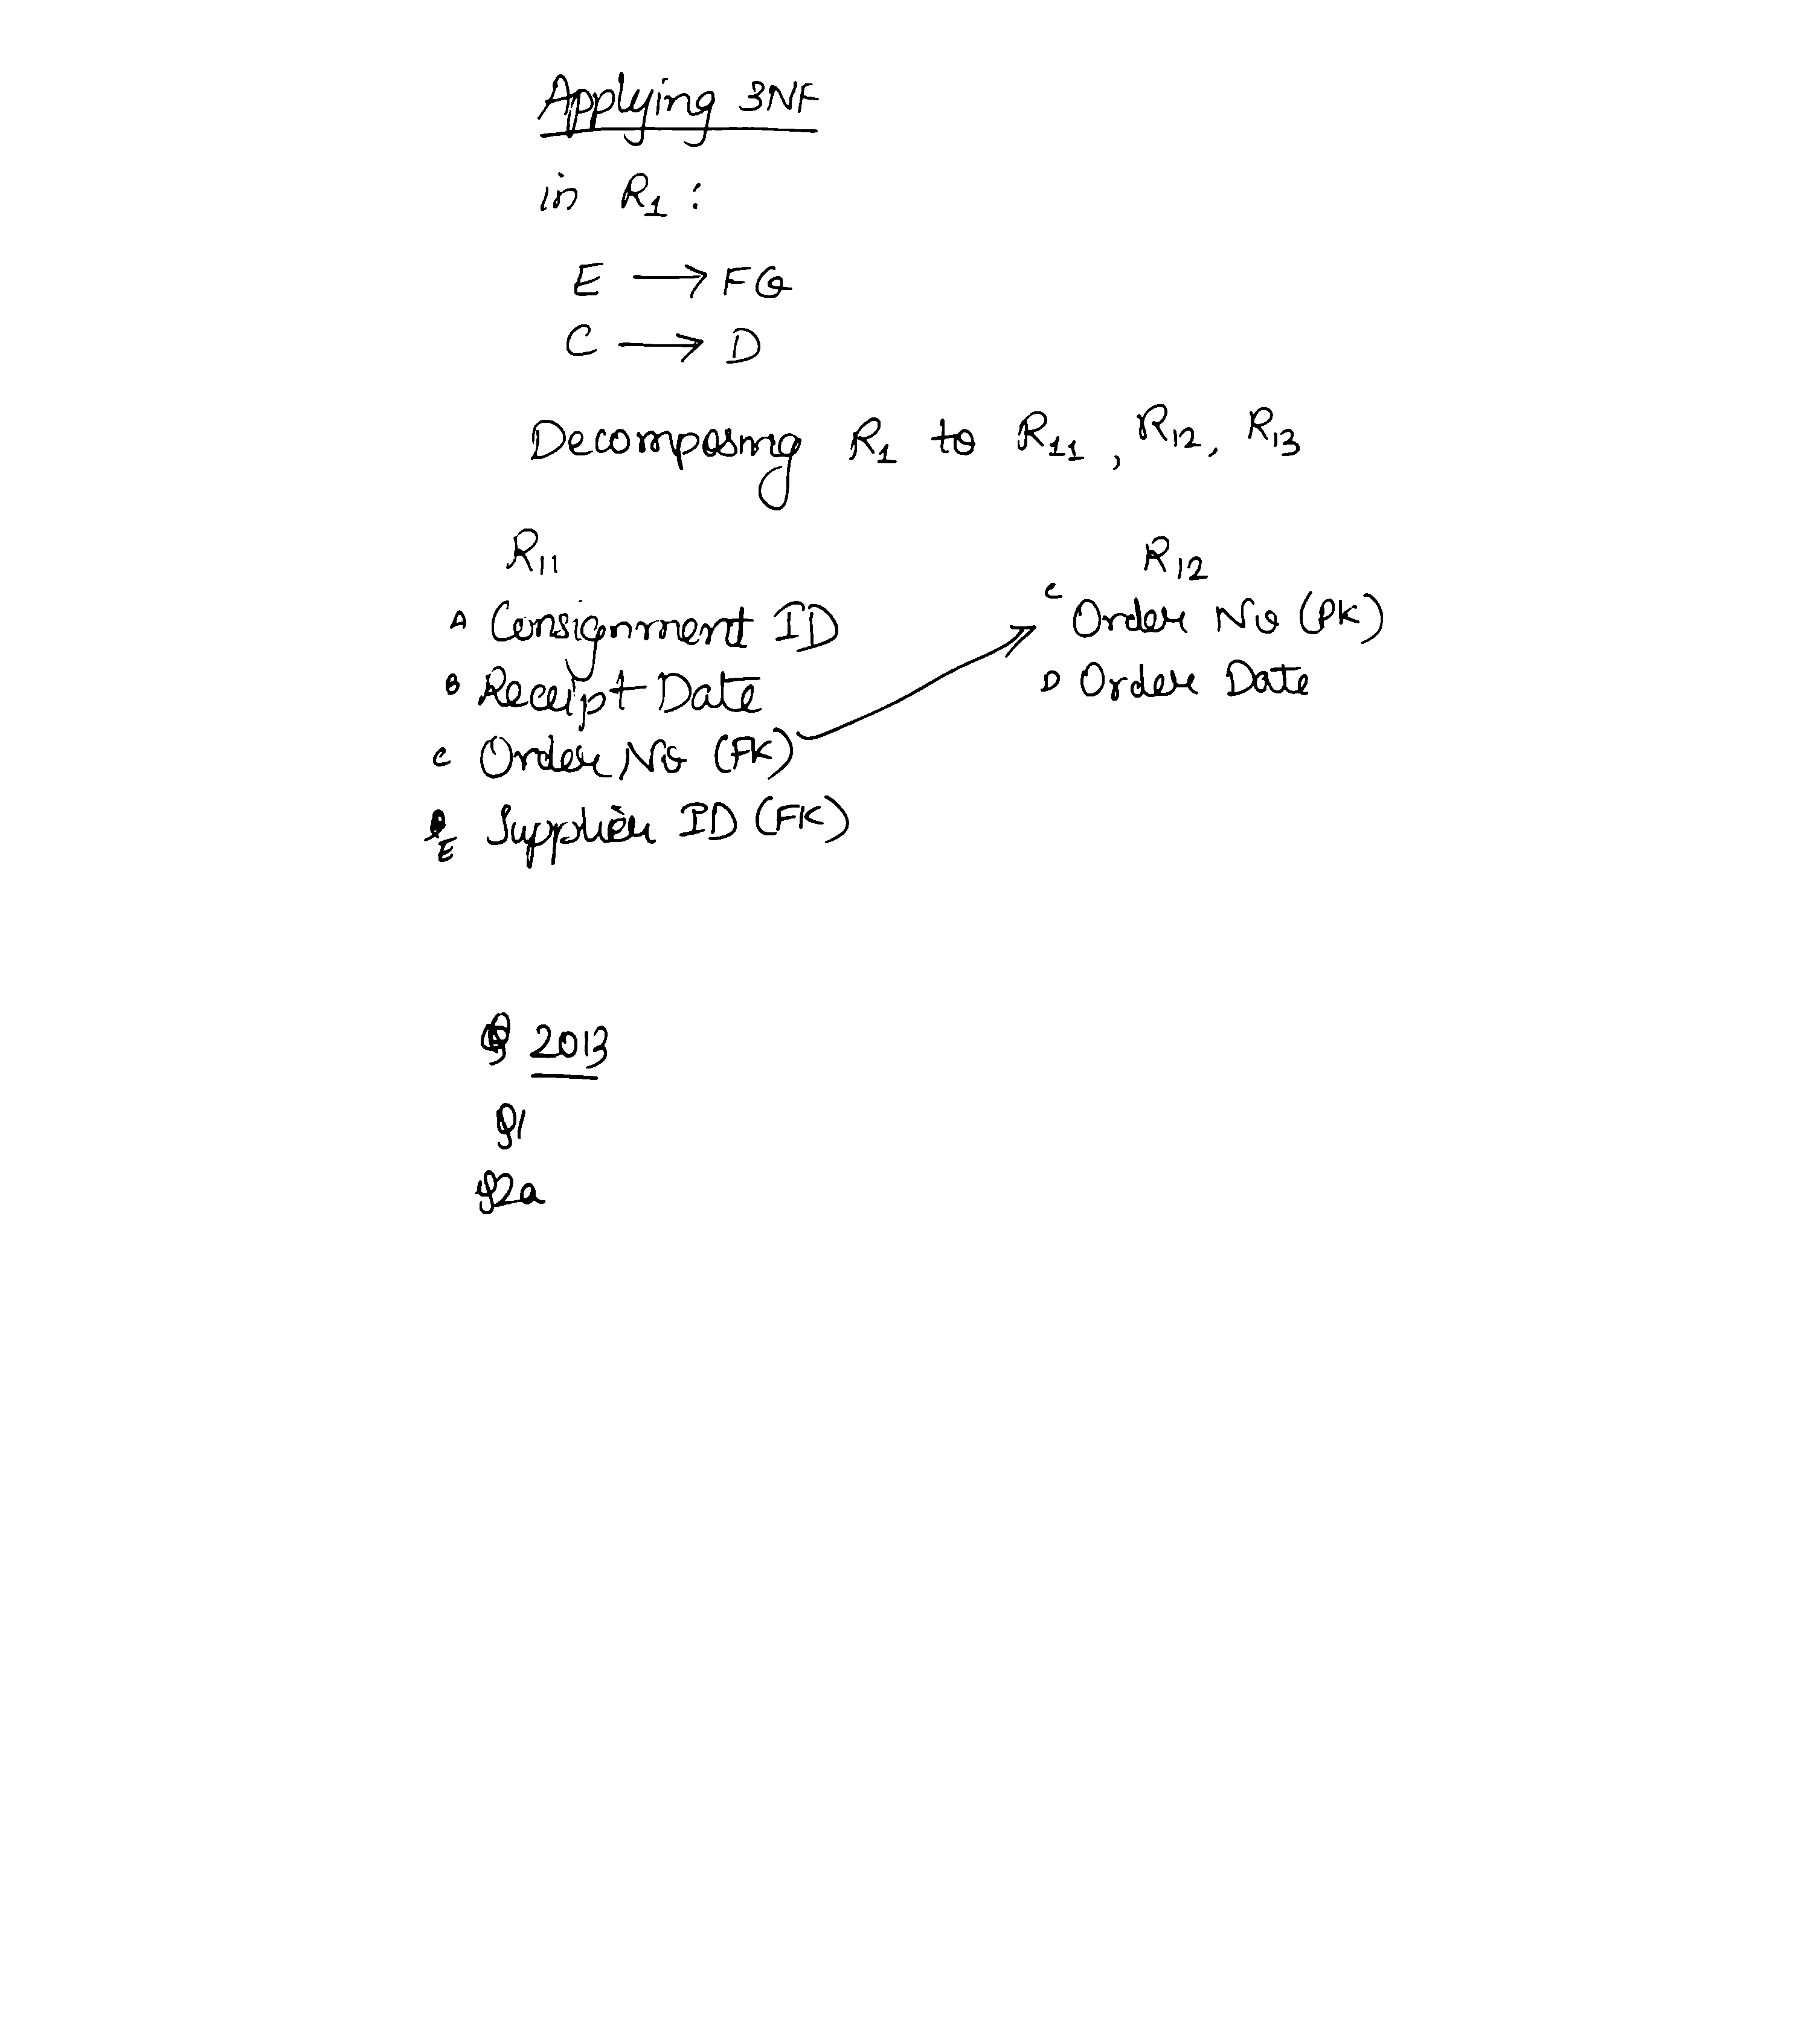 Applying 3NF
in R1 :
E → FG
C → D
Decomposing R1 to R11, R12, R13
R11
A Consignment ID
B Receipt Date
C Order No (FK)
E Supplier ID (FK)
R12
C Order No (PK)
D Order Date
2013
Q1
Q2a